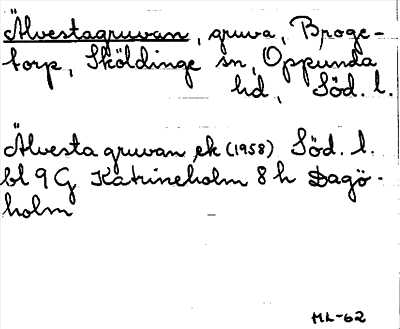 Älvestagruvan, gruva, Broge-
torp, Sköldinge sn, Oppunda
hd, Söd. l.
Älvesta gruvan ek (1958) Söd. l.
bl 9 G Katrineholm 8 h Dagö-
holm
ML-62